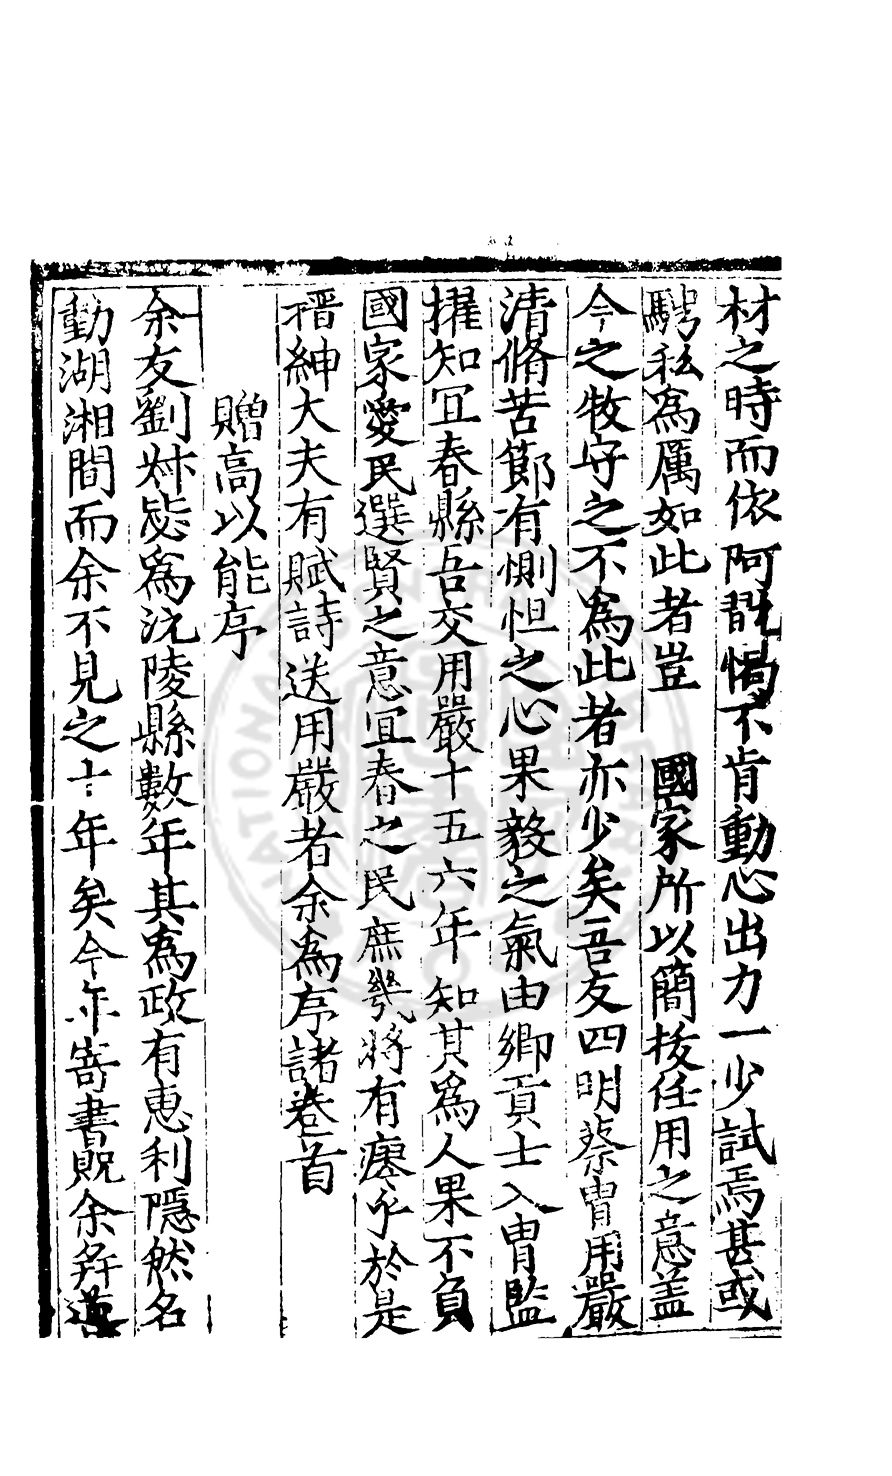 材之時而依阿翫愒不肯動心出力一少試焉甚或
騁私為厲如此者豈　國家所以簡拔任用之意盖
今之牧守之不為此者亦少矣吾友四明蔡胄用嚴
清脩苦節有惻怛之心果毅之氣由鄉貢士入胄監
擢知冝春縣吾交用嚴十五六年知其為人果不負
國家愛民選賢之意冝春之民庶幾將有瘳乎於是
搢紳大夫有賦詩送用嚴者余為序諸卷首
贈高以能序
余友劉𠦑毖為沅陵縣數年其為政有惠利隱然名
動湖湘間而余不見之十年矣今年寄書貺余并道
NATIONAL CENTRAL LIBRARY